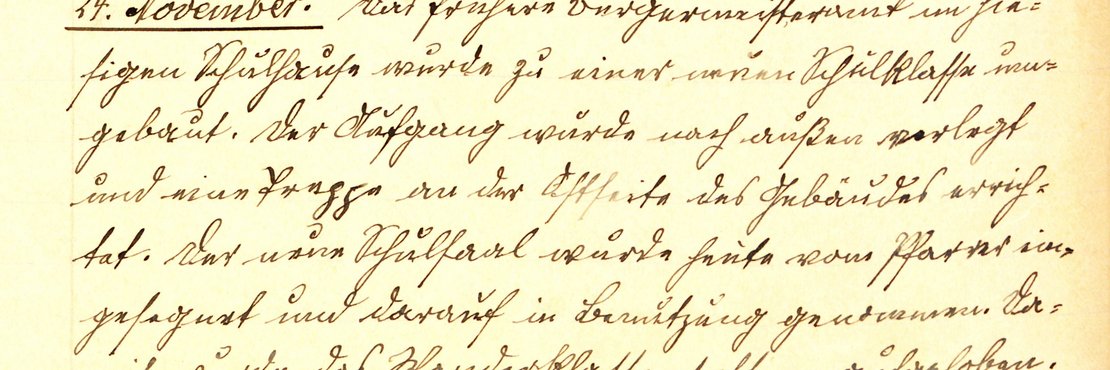 24. November. Das frühere Bürgermeisteramt im hie-
sigen Schulhause wurde zu einer neuen Schulklasse um-
gebaut. Der Aufgang wurde nach außen verlegt
und eine Treppe an der Ostseite des Gebäudes errich-
tet. Der neue Schulsaal wurde heute vom Pfarrer ein-
gesegnet und darauf in Benutzung genommen. Da-
mit wurde das Wanderklassen aufgehoben.